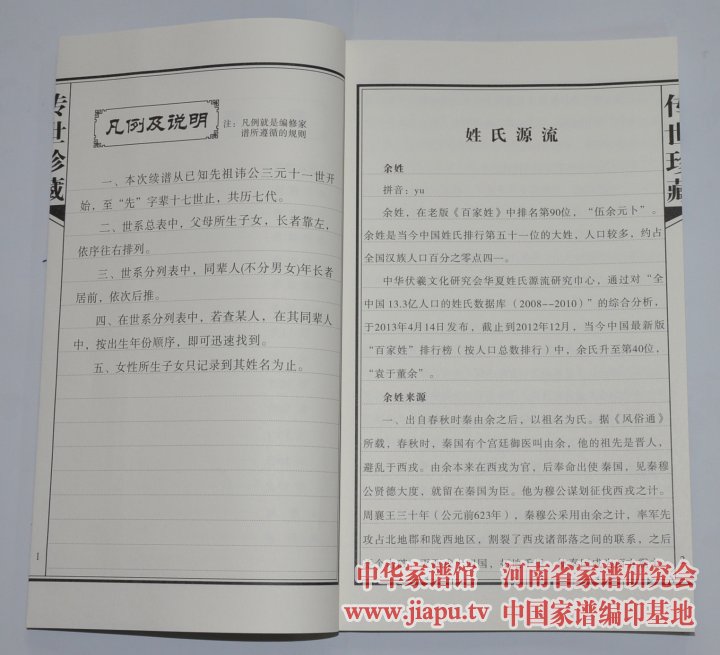 传世珍藏
凡例及说明
注：凡例就是编修家
谱所遵循的规则
一、本次续谱从已知先祖讳公三元十一世开
始，至“先”字辈十七世止，共历七代。
二、世系总表中，父母所生子女，长者靠左，
依序往右排列。
三、世系分列表中，同辈人(不分男女)年长者
居前，依次后推。
四、在世系分列表中，若查某人，在其同辈人
中，按出生年份顺序，即可迅速找到。
五、女性所生子女只记录到其姓名为止。
1
传世珍藏
姓氏源流
余姓
拼音：yu
余姓，在老版《百家姓》中排名第90位，“伍余元卜”。
余姓是当今中国姓氏排行第五十一位的大姓，人口较多，约占
全国汉族人口百分之零点四一。
中华伏羲文化研究会华夏姓氏源流研究中心，通过对“全
中国 13.3亿人口的姓氏数据库（2008--2010）”的综合分析，
于2013年4月14日发布，截止到2012年12月，当今中国最新版
“百家姓”排行榜（按人口总数排行）中，余氏升至第40位，
“袁于董余”。
余姓来源
一、出自春秋时秦由余之后，以祖名为氏。据《风俗通》
所载，春秋时，秦国有个宫廷御医叫由余，他的祖先是晋人，
避乱于西戎。由余本来在西戎为官，后奉命出使 秦国，见秦穆
公贤德大度，就留在秦国为臣。他为穆公谋划征伐西戎之计。
周襄王三十年（公元前623年），秦穆公采用由余之计，率军先
攻占北地郡和陇西地区，割裂了西戎诸部落之间的联系，之后
中华家谱馆 河南省家谱研究会
www.jiapu.tv 中国家谱编印基地